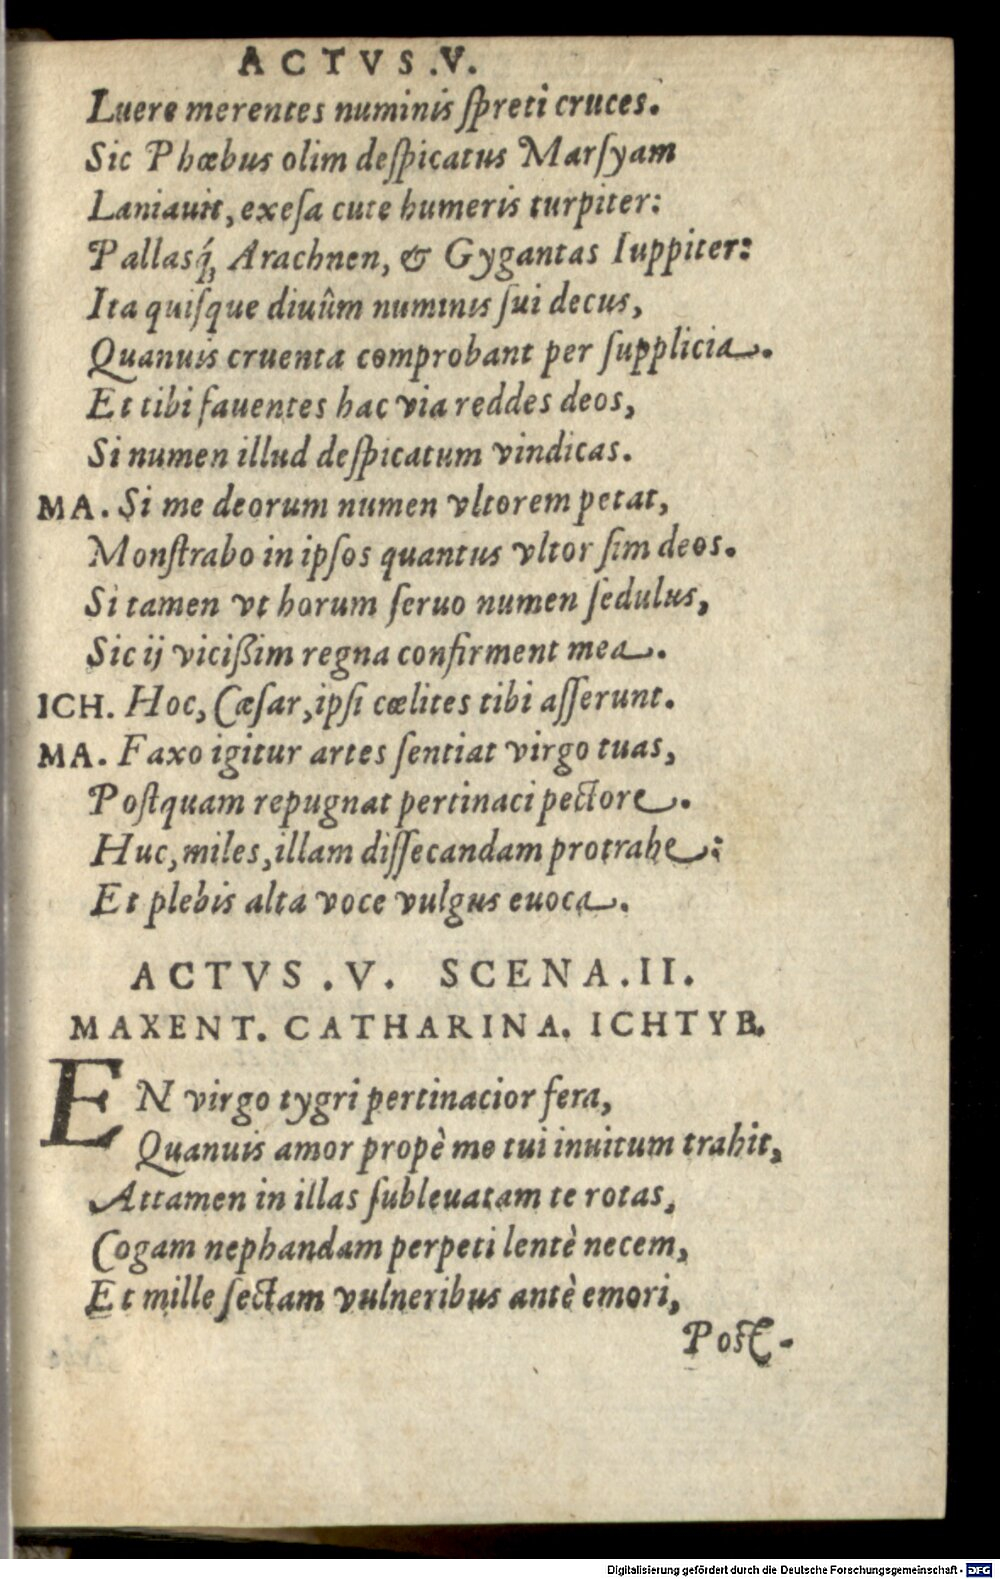 ACTVS.V.
Luere merentes numinis ſpreti cruces.
Sic Phœbus olim deſpicatus Marſyam
Laniauit, exeſa cute humeris turpiter:
Pallasq́; Arachnen, & Gygantas Iuppiter:
Ita quiſque diuûm numinis ſui decus,
Quanuis cruenta comprobant per ſupplicia.
Et tibi fauentes hac via reddes deos,
Si numen illud deſpicatum vindicas.
MA. Si me deorum numen vltorem petat,
Monſtrabo in ipſos quantus vltor ſim deos.
Si tamen vt horum ſeruo numen ſedulus,
Sic ij vicißim regna confirment mea.
ICH. Hoc, Cæſar, ipſi cœlites tibi aſſerunt.
MA. Faxo igitur artes ſentiat virgo tuas,
Poſtquam repugnat pertinaci pectore.
Huc, miles, illam diſſecandam protrahe:
Et plebis alta voce vulgus euoca.
ACTVS.V. SCENA.II.
MAXENT. CATHARINA. ICHTYB.
EN virgo tygri pertinacior fera,
Quanuis amor propè me tui inuitum trahit,
Attamen in illas ſubleuatam te rotas,
Cogam nephandam perpeti lentè necem,
Et mille ſectam vulneribus antè emori,
Poſt-
Digitalisierung gefördert durch die Deutsche Forschungsgemeinschaft - DFG